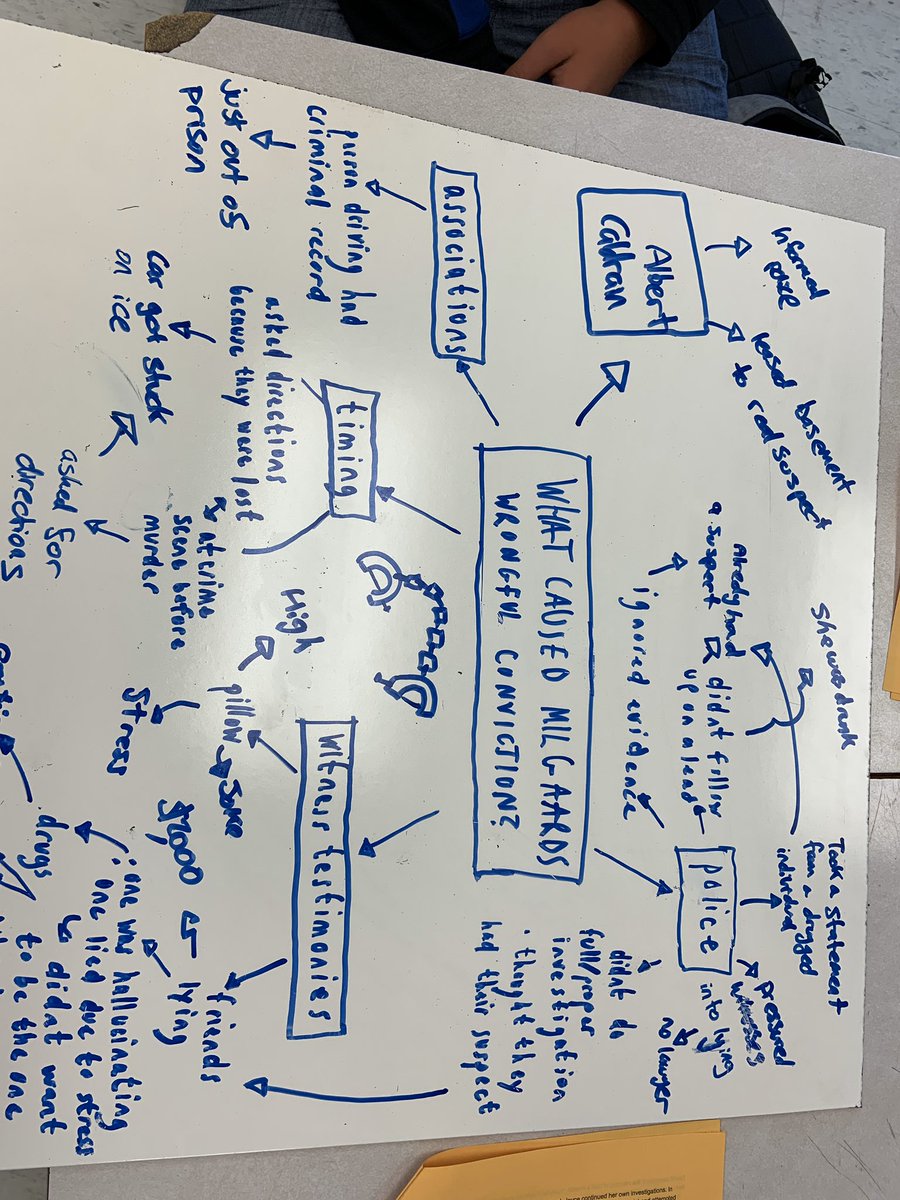 WHAT CAUSED MILGAARDS
WRONGFUL CONVICTION?
Albert
Cadtran
informed
police
leased basement
to real suspect
associations
person driving had
criminal record
just out of
prison
timing
asked directions
because they were lost
car got stuck
on ice
at crime
scene before
murder
asked for
directions
witness testimonies
pillow
some
High
Stress
$2,000
friends
lying
: one was hallucinating
· one lied due to stress
didnt want
to be the one
drugs
police
ignored evidence
didnt follow
up on a lead
Already had
a suspect
She was drunk
Took a statement
from a drugged
individual
pressured
witnesses
into lying
no lawyer
didnt do
full/proper
investigation
· thought they
had their suspect
continued her own investigations. In